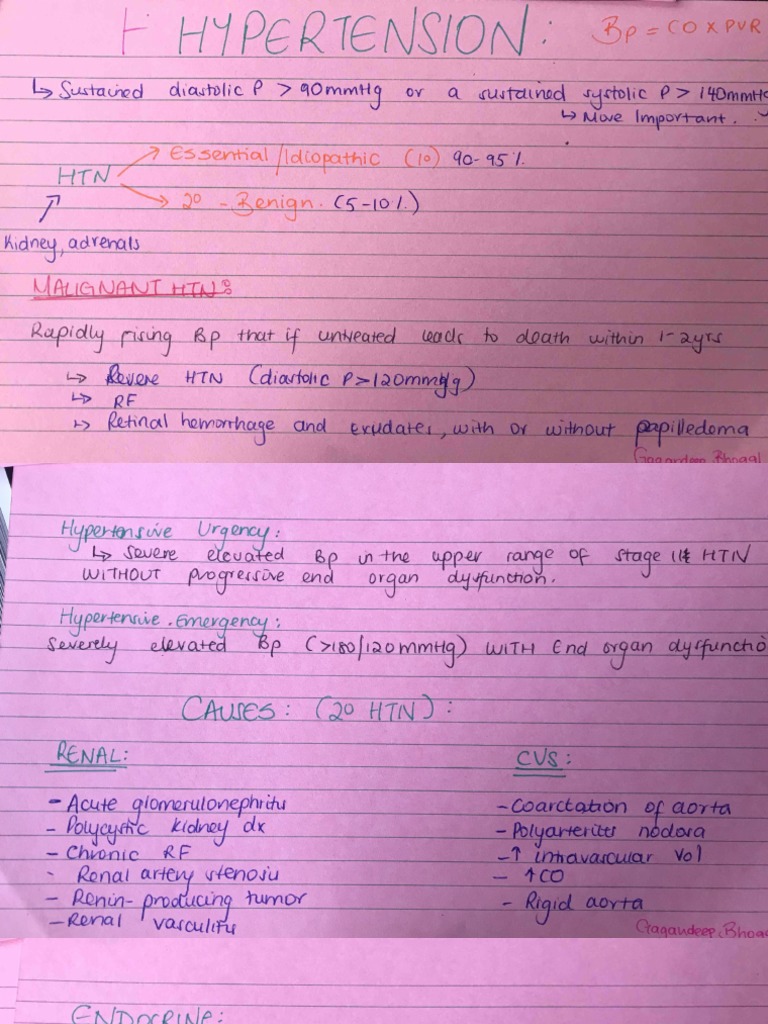 HYPERTENSION:
Bp = CO X PVR
↳ Sustained diastolic P > 90mmHg or a sustained systolic P > 140mmHg
↳ More Important.
HTN
→ Essential/Idiopathic (1°) 90-95%.
→ 2° - Benign. (5-10%.)
Kidney, adrenals
MALIGNANT HTN:
Rapidly rising Bp that if untreated leads to death within 1-2yrs
↳ Severe HTN (diastolic P > 120mmHg)
↳ RF
↳ Retinal hemorrhage and exudates, with or without papilledema
Gagandeep Bhogal
Hypertensive Urgency:
↳ severe elevated Bp in the upper range of stage HTN
WITHOUT progressive end organ dysfunction.
Hypertensive Emergency:
Severely elevated Bp (>180/120mmHg) WITH End organ dysfunctio
CAUSES: (2° HTN):
RENAL:
- Acute glomerulonephritis
- Polycystic kidney dx
- Chronic RF
- Renal artery stenosis
- Renin-producing tumor
- Renal vasculitis
CVS:
- Coarctation of aorta
- Polyarteritis nodosa
- ↑ intravascular vol
- ↑CO
- Rigid aorta
Gagandeep Bhoga
ENDOCRINE: